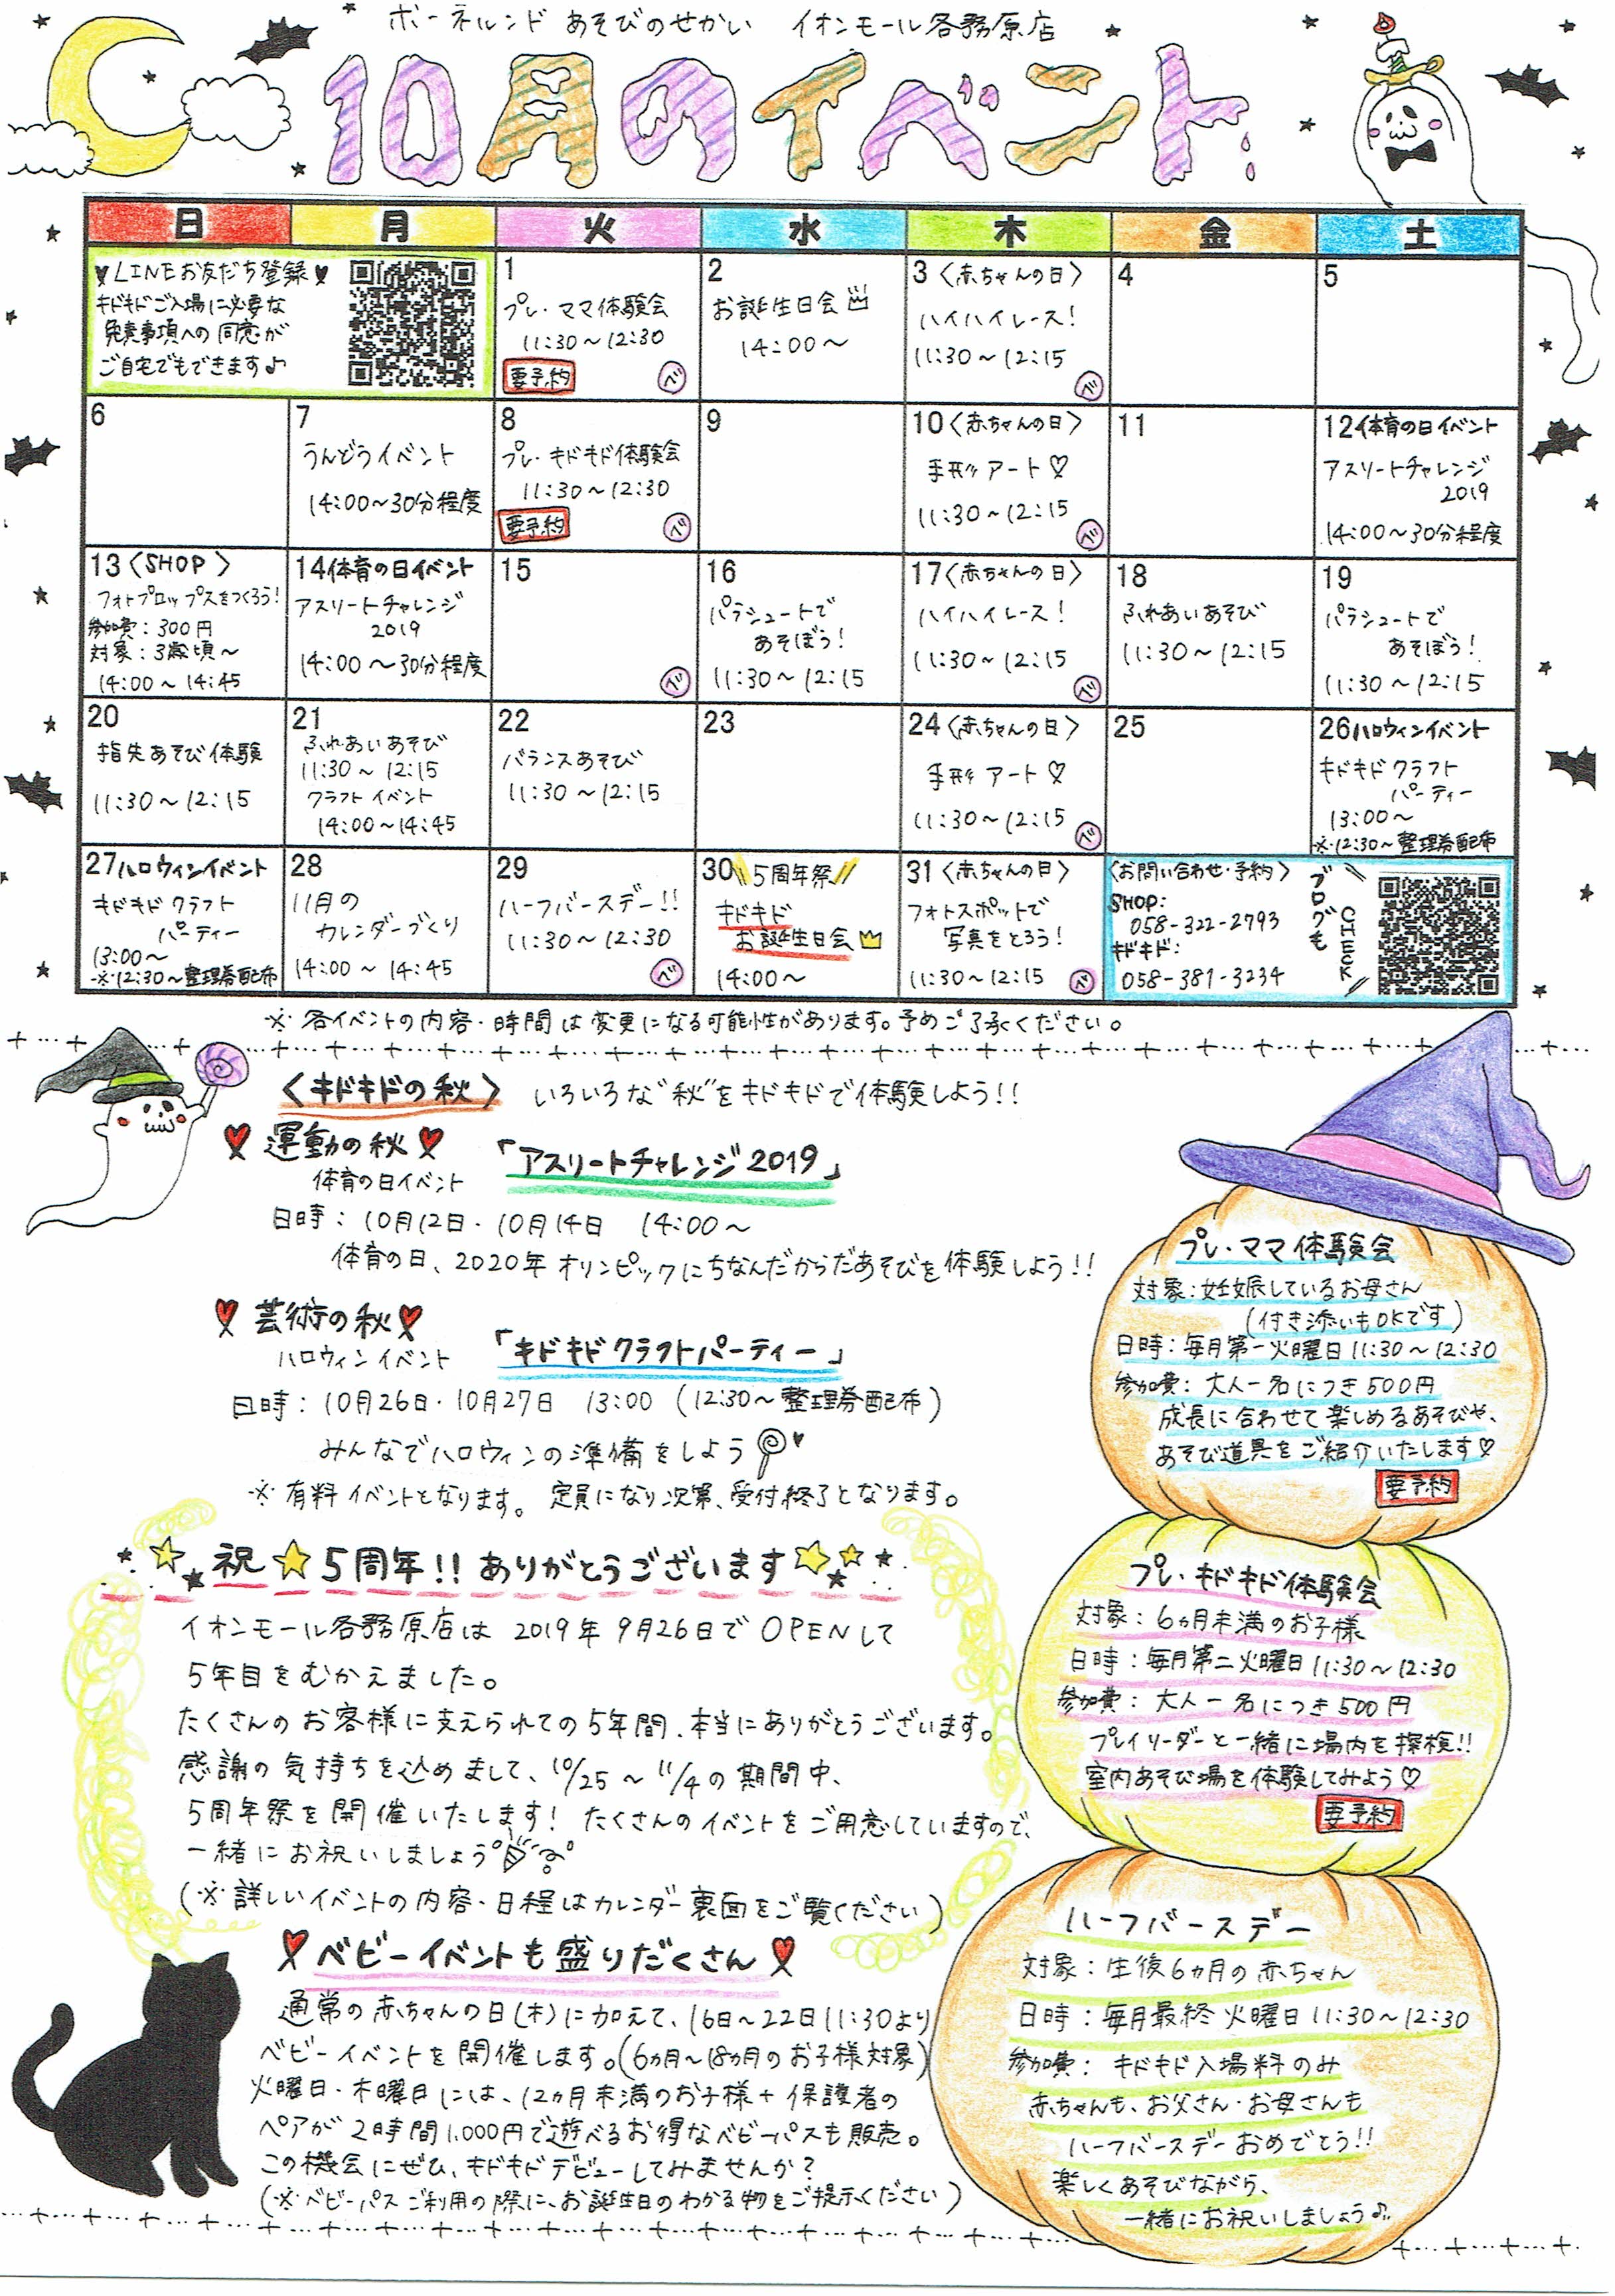 ボーネルンド あそびのせかい イオンモール各務原店
10月のイベント
日 月 火 水 木 金 土
♥LINEお友だち登録♥
キドキドご入場に必要な
免責事項への同意が
ご自宅でもできます♪
1
プレ・ママ体験会
11:30～12:30
要予約 ベ
2
お誕生日会
14:00～
3〈赤ちゃんの日〉
ハイハイレース!
11:30～12:15
ベ
4
5
6
7
うんどうイベント
14:00～30分程度
8
プレ・キドキド体験会
11:30～12:30
要予約 ベ
9
10〈赤ちゃんの日〉
手形アート♡
11:30～12:15
ベ
11
12体育の日イベント
アスリートチャレンジ
2019
14:00～30分程度
13〈SHOP〉
フォトプロップスをつくろう!
参加費:300円
対象:3歳頃～
14:00～14:45
14体育の日イベント
アスリートチャレンジ
2019
14:00～30分程度
15
ベ
16
パラシュートで
あそぼう!
11:30～12:15
17〈赤ちゃんの日〉
ハイハイレース!
11:30～12:15
ベ
18
ふれあいあそび
11:30～12:15
19
パラシュートで
あそぼう!
11:30～12:15
20
指先あそび体験
11:30～12:15
21
ふれあいあそび
11:30～12:15
クラフトイベント
14:00～14:45
22
バランスあそび
11:30～12:15
23
24〈赤ちゃんの日〉
手形アート♡
11:30～12:15
ベ
25
26ハロウィンイベント
キドキドクラフト
パーティー
13:00～
※12:30～整理券配布
27ハロウィンイベント
キドキドクラフト
パーティー
13:00～
※12:30～整理券配布
28
11月の
カレンダーづくり
14:00～14:45
29
ハーフバースデー!!
11:30～12:30
ベ
30\\5周年祭//
キドキド
お誕生日会
14:00～
31〈赤ちゃんの日〉
フォトスポットで
写真をとろう!
11:30～12:15 ベ
〈お問い合わせ・予約〉
SHOP:
058-322-2793
キドキド:
058-381-3234
ブログも
CHECK
※各イベントの内容・時間は変更になる可能性があります。予めご了承ください。
〈キドキドの秋〉 いろいろな"秋"をキドキドで体験しよう!!
運動の秋 「アスリートチャレンジ2019」
体育の日イベント
日時:10月12日・10月14日 14:00～
体育の日、2020年オリンピックにちなんだからだあそびを体験しよう!!
芸術の秋
ハロウィンイベント 「キドキドクラフトパーティー」
日時:10月26日・10月27日 13:00 (12:30～整理券配布)
みんなでハロウィンの準備をしよう
※有料イベントとなります。定員になり次第、受付終了となります。
祝☆5周年!!ありがとうございます
イオンモール各務原店は 2019年9月26日でOPENして
5年目をむかえました。
たくさんのお客様に支えられての5年間、本当にありがとうございます。
感謝の気持ちを込めまして、10/25～11/4の期間中、
5周年祭を開催いたします! たくさんのイベントをご用意していますので、
一緒にお祝いしましょう
(※詳しいイベントの内容・日程はカレンダー裏面をご覧ください)
ベビーイベントも盛りだくさん
通常の赤ちゃんの日(木)に加えて、16日～22日11:30より
ベビーイベントを開催します。(6ヵ月～18ヵ月のお子様対象)
火曜日・木曜日には、12ヵ月未満のお子様+保護者の
ペアが2時間1,000円で遊べるお得なベビーパスも販売。
この機会にぜひ、キドキドデビューしてみませんか?
(※ベビーパスご利用の際に、お誕生日のわかる物をご提示ください)
プレ・ママ体験会
対象:妊娠しているお母さん
(付き添いもOKです)
日時:毎月第一火曜日11:30～12:30
参加費:大人一名につき500円
成長に合わせて楽しめるあそびや、
あそび道具をご紹介いたします♡
要予約
プレ・キドキド体験会
対象:6ヵ月未満のお子様
日時:毎月第二火曜日11:30～12:30
参加費:大人一名につき500円
プレイリーダーと一緒に場内を探検!!
室内あそび場を体験してみよう♡
要予約
ハーフバースデー
対象:生後6ヵ月の赤ちゃん
日時:毎月最終火曜日11:30～12:30
参加費:キドキド入場料のみ
赤ちゃんも、お父さん・お母さんも
ハーフバースデーおめでとう!!
楽しくあそびながら、
一緒にお祝いしましょう♪